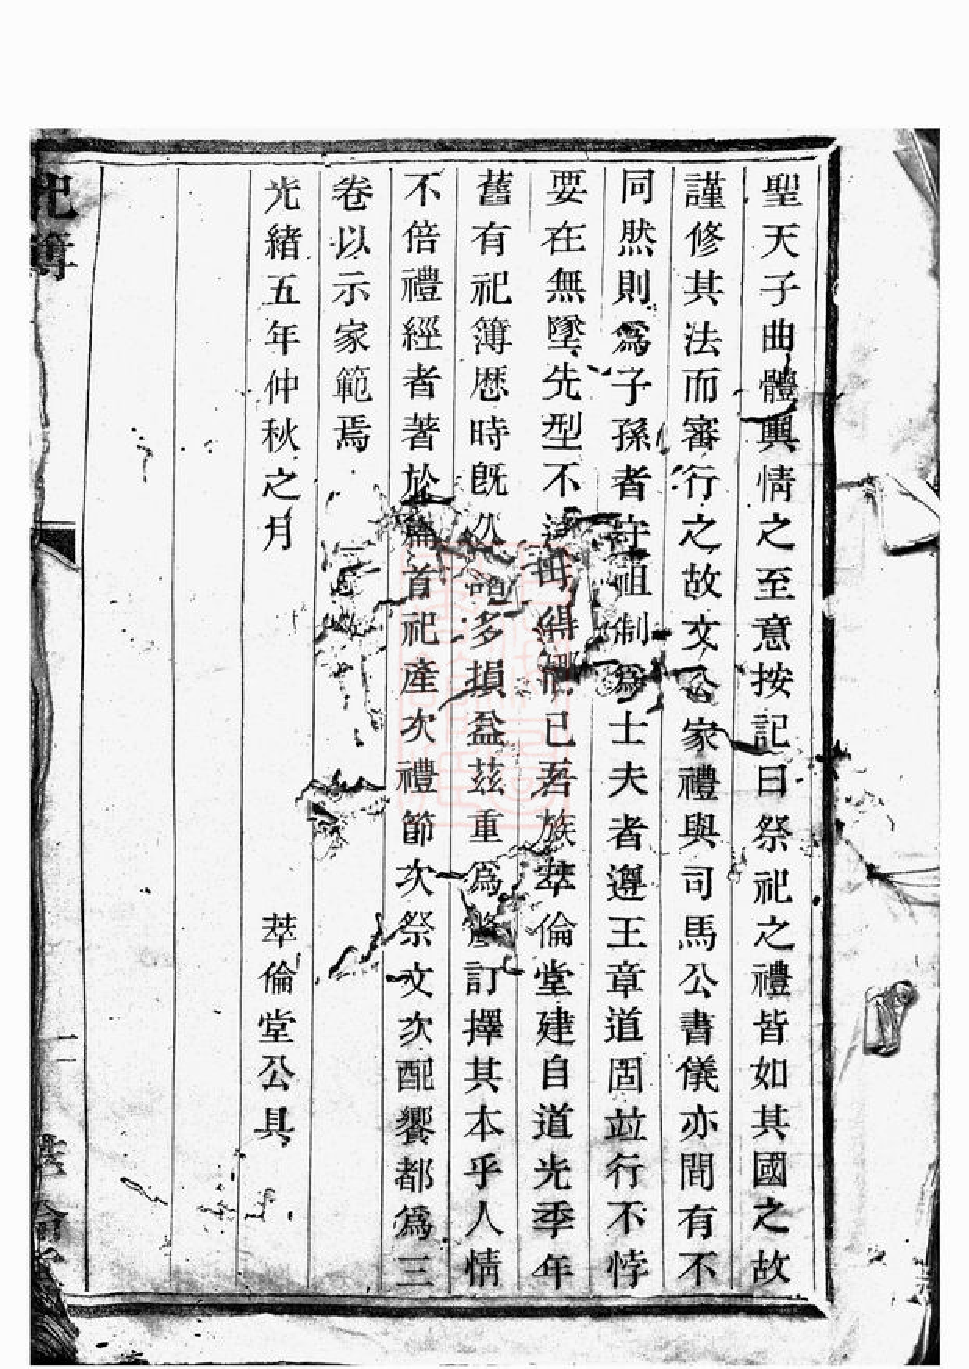 聖天子曲體輿情之至意按記曰祭祀之禮皆如其國之故
謹修其法而審行之故文公家禮與司馬公書儀亦間有不
同然則爲子孫者守祖制爲士夫者遵王章道固竝行不悖
要在無墜先型不已吾族萃倫堂建自道光季年
舊有祀簿歷時旣久多損益茲重爲修訂擇其本乎人情
不倍禮經者著於篇首祀產次禮節次祭文次配饗都爲三
卷以示家範焉
光緒五年仲秋之月 萃倫堂公具
祀簿